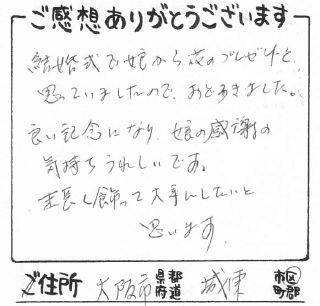 ご感想ありがとうございます
結婚式で娘から花のプレゼントと
思っていましたので、おどろきました。
良い記念になり、娘の感謝の
気持ちうれしいです。
末長く飾って大事にしたいと
思います。
ご住所 大阪市 都道府県 城東 市区町郡